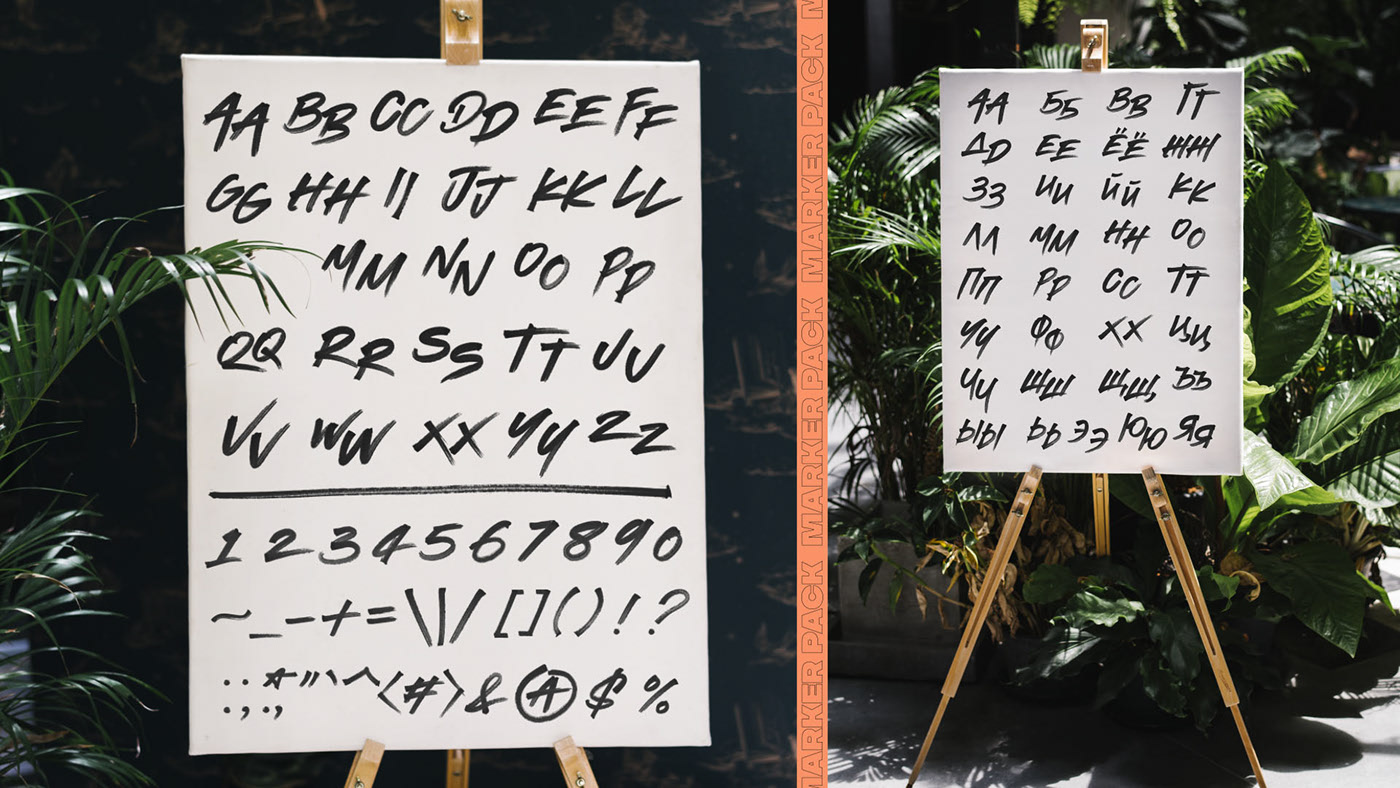 AA BB CC DD EE FF
GG HH II JJ KK LL
MM NN OO PP
QQ RR SS TT UU
VV WW XX YY ZZ
1 2 3 4 5 6 7 8 9 0
~ _ - + = \ | / [ ] ( ) ! ?
: , : ; * " ' ` ^ < # > & @ $ %
MARKER PACK MARKER PACK MARKER PACK
АА ББ ВВ ГГ
ДД ЕЕ ЁЁ ЖЖ
ЗЗ ИИ ЙЙ КК
ЛЛ ММ НН ОО
ПП РР СС ТТ
УУ ФФ ХХ ЦЦ
ЧЧ ШШ ЩЩ ЪЪ
ЫЫ ЬЬ ЭЭ ЮЮ ЯЯ